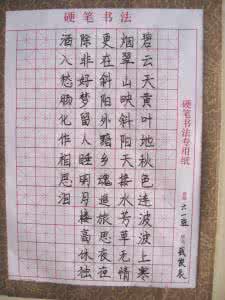 硬笔书法
硬笔书法专用纸
六一班
碧云天黄叶地秋色连波波上寒
烟翠山映斜阳天接水芳草无情
更在斜阳外黯乡魂追旅思夜夜
除非好梦留人睡明月楼高休独
酒入愁肠化作相思泪